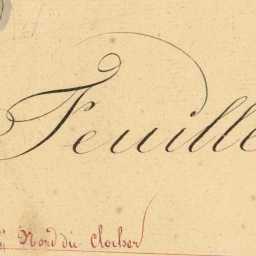 Feuille
Nord du Clocher